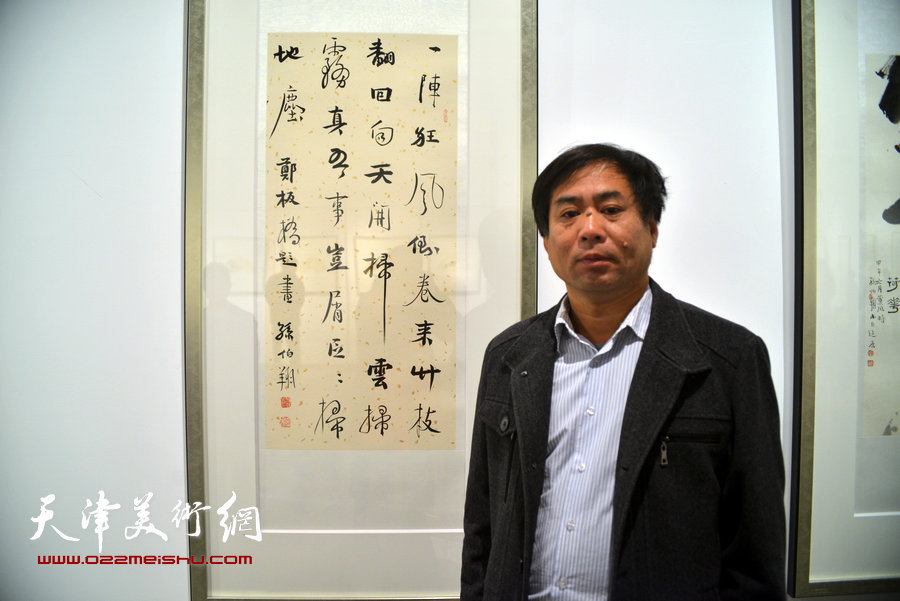 一陣狂風倒卷来竹枝
翻回向天開掃雲掃
霧真吾事豈屑區:掃
地塵 鄭板橋題畫 孫伯翔
荷葉
天津美術網
www.022meishu.com